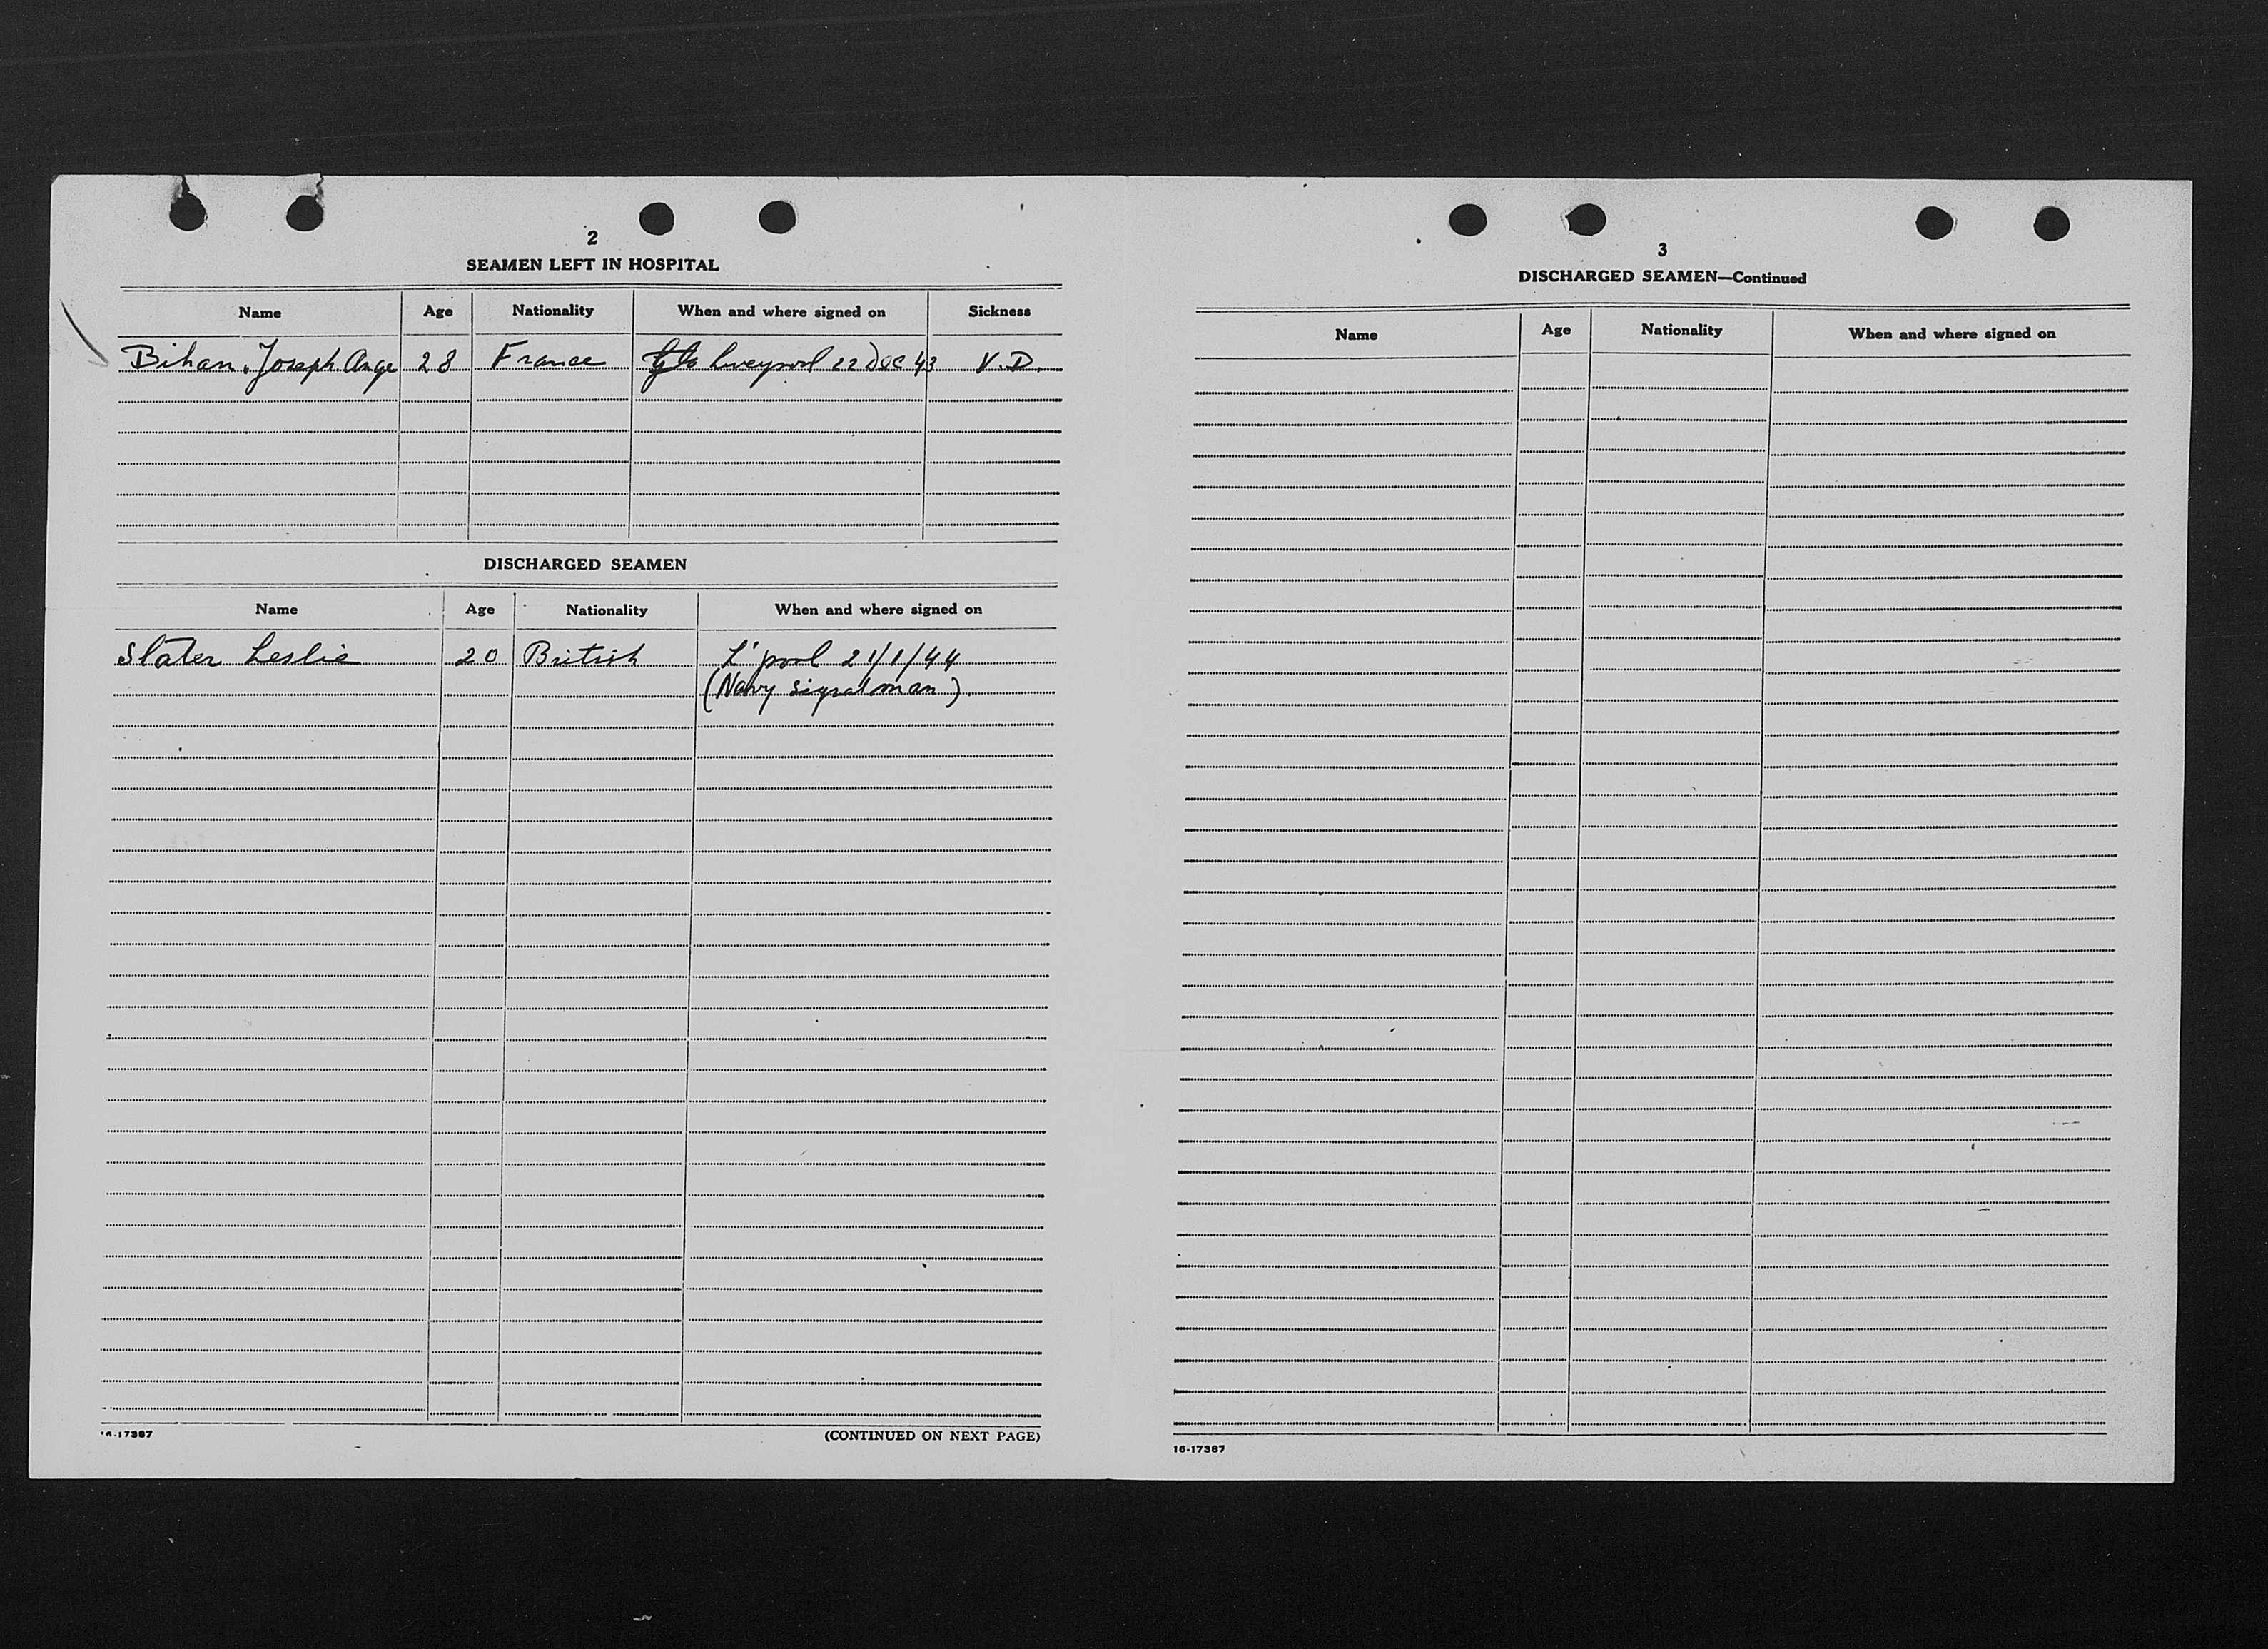 2
SEAMEN LEFT IN HOSPITAL
Name Age Nationality When and where signed on Sickness
Bihan, Joseph Ange 28 France Liverpool 22 Dec 43 V.D.
DISCHARGED SEAMEN
Name Age Nationality When and where signed on
Slater Leslie 20 British L'pool 21/1/44
(Navy signalman).
16-17387
(CONTINUED ON NEXT PAGE)
3
DISCHARGED SEAMEN—Continued
Name Age Nationality When and where signed on
16-17387